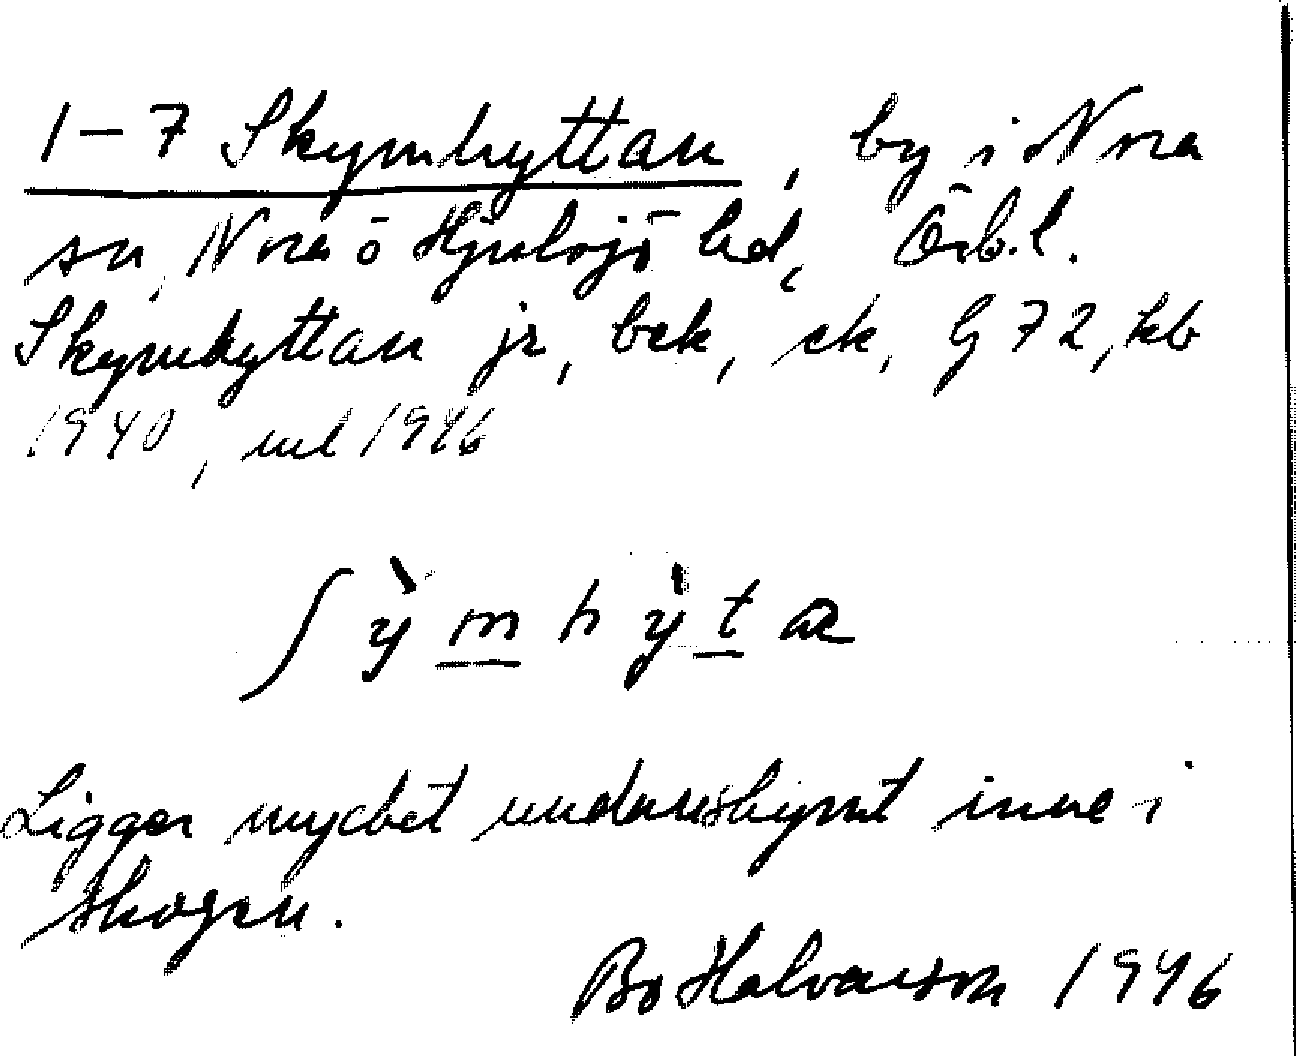 1-7 Skymhyttan, by i Nora
sn, Nora o Hjulsjö hd, Örb. l.
Skymhyttan jr, bek, ek, G 72, kb
1940, ml 1946
ʃ ỳ m h ỳ t a
Ligger mycket undanskymt inne i
skogen.
Bo Halvarson 1946